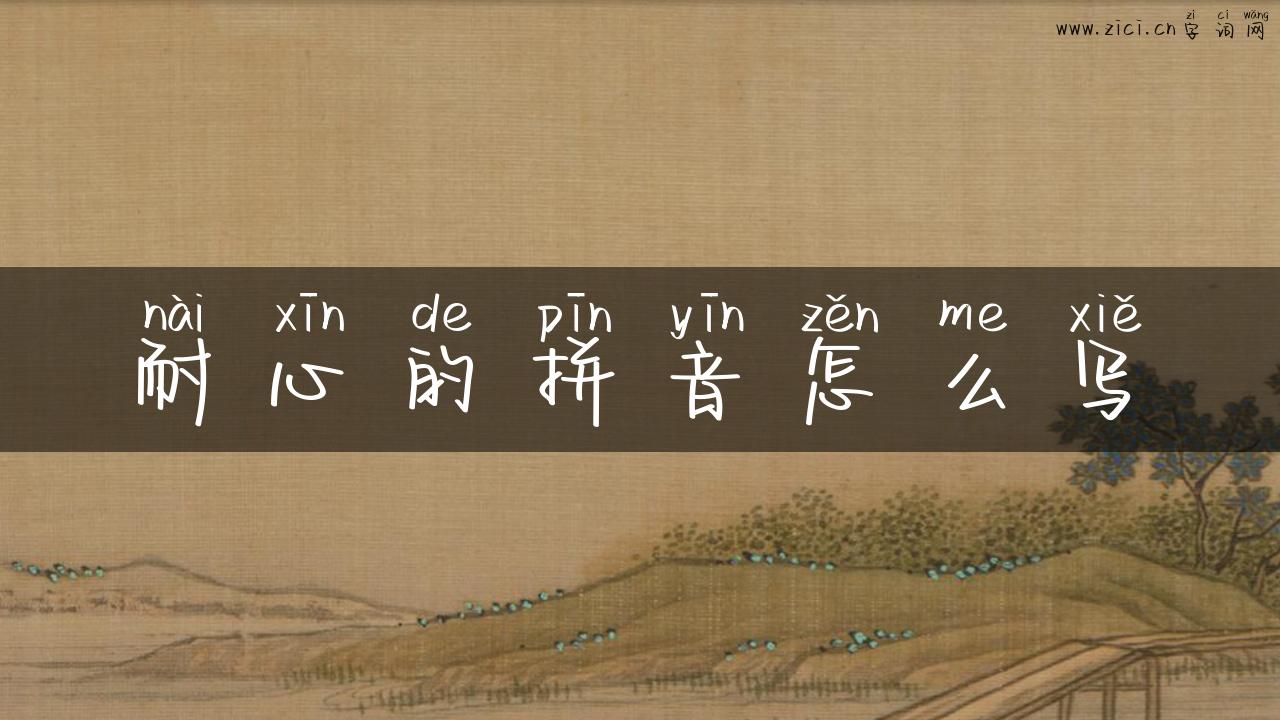 zì cí wǎng
www.zici.cn字词网
nài xīn de pīn yīn zěn me xiě
耐心的拼音怎么写